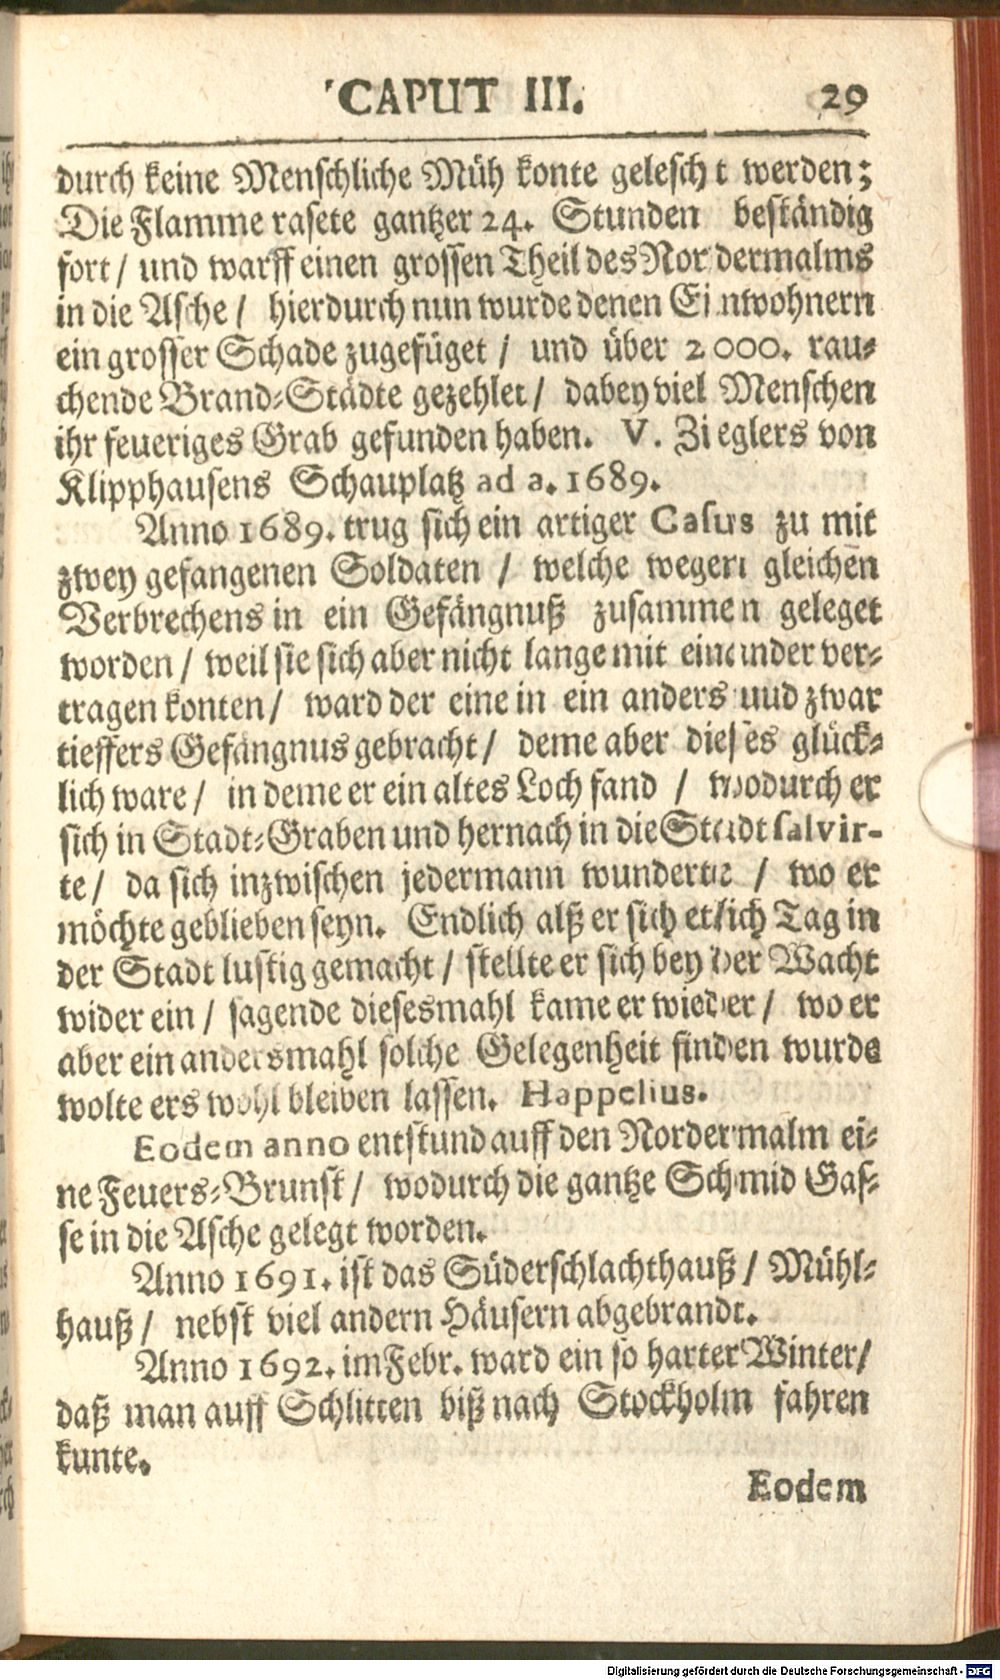 CAPUT III. 29
durch keine Menschliche Müh konte gelescht werden;
Die Flamme rasete gantzer 24. Stunden beständig
fort / und warff einen grossen Theil des Nordermalms
in die Asche / hierdurch nun wurde denen Einwohnern
ein grosser Schade zugefüget / und über 2000. rau-
chende Brand-Städte gezehlet / dabey viel Menschen
ihr feueriges Grab gefunden haben. V. Zieglers von
Klipphausens Schauplatz ad a. 1689.
Anno 1689. trug sich ein artiger Casus zu mit
zwey gefangenen Soldaten / welche wegen gleichen
Verbrechens in ein Gefängnuß zusammen geleget
worden / weil sie sich aber nicht lange mit einander ver-
tragen konten / ward der eine in ein anders uud zwar
tieffers Gefängnus gebracht / deme aber dieses glück-
lich ware / in deme er ein altes Loch fand / wodurch er
sich in Stadt-Graben und hernach in die Stadt salvir-
te / da sich inzwischen jedermann wunderte / wo er
möchte geblieben seyn. Endlich alß er sich etlich Tag in
der Stadt lustig gemacht / stellte er sich bey der Wacht
wider ein / sagende diesesmahl kame er wieder / wo er
aber ein andersmahl solche Gelegenheit finden wurde
wolte ers wohl bleiben lassen. Happelius.
Eodem anno entstund auff den Nordermalm ei-
ne Feuers-Brunst / wodurch die gantze Schmid Gas-
se in die Asche gelegt worden.
Anno 1691. ist das Süderschlachthauß / Mühl-
hauß / nebst viel andern Häusern abgebrandt.
Anno 1692. im Febr. ward ein so harter Winter /
daß man auff Schlitten biß nach Stockholm fahren
kunte.
Eodem
Digitalisierung gefördert durch die Deutsche Forschungsgemeinschaft - DFG